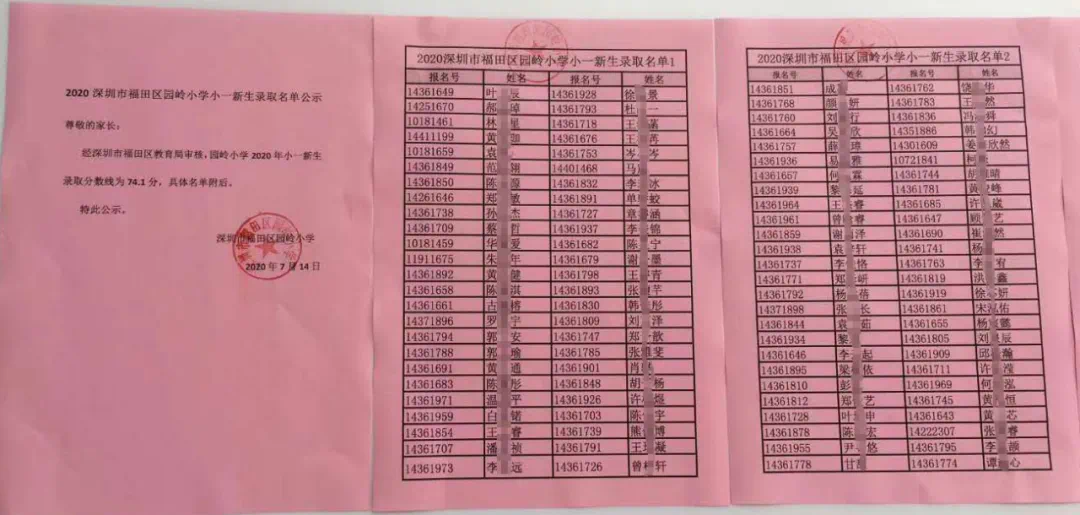 2020深圳市福田区园岭小学小一新生录取名单公示
尊敬的家长:
经深圳市福田区教育局审核,园岭小学2020年小一新生
录取分数线为74.1分,具体名单附后。
特此公示。
深圳市福田区园岭小学
2020年7月14日
2020深圳市福田区园岭小学小一新生录取名单1
报名号 姓名 报名号 姓名
14361649 叶 辰 14361928 徐 景
14251670 郝 焯 14361793 杜 一
10181461 林 里 14361718 王 菡
14411199 黄 珈 14361676 王 苒
10181659 袁 14361753 岑 岑
14361849 范 翊 14401468 马
14361850 陈 源 14361832 李 冰
14261646 郑 敏 14361891 单 蛟
14361738 孙 杰 14361727 章 涵
14361709 蔡 哲 14361937 李 锦
10181459 华 爱 14361682 陈 宁
11911675 朱 年 14361679 谢 墨
14361892 黄 健 14361798 王 青
14361658 陈 淇 14361893 张 芊
14361661 古 榕 14361830 韩 彤
14371896 罗 宇 14361809 刘 泽
14361794 郭 安 14361747 郑 歆
14361788 郭 瑜 14361785 张 斐
14361691 黄 通 14361901 肖
14361683 陈 彤 14361848 胡 杨
14361971 温 平 14361926 许 煜
14361959 白 锘 14361703 陈 宇
14361854 王 睿 14361739 熊 博
14361707 潘 祯 14361791 王 凝
14361973 李 远 14361726 曾 轩
2020深圳市福田区园岭小学小一新生录取名单2
报名号 姓名 报名号 姓名
14361851 成 14361762 饶 华
14361768 颜 妍 14361783 王 然
14361760 刘 行 14361836 冯 舜
14361664 吴 欣 14351886 韩 幻
14361757 薛 璋 14301609 姜 欣然
14361936 易 雅 10721841 柯
14361657 何 霖 14361744 胡 晴
14361939 黎 延 14361781 黄 峰
14361964 王 睿 14361685 许 崴
14361961 曾 睿 14361647 顾 艺
14361859 谢 泽 14361690 崔 然
14361938 袁 轩 14361741 杨
14361737 李 恪 14361763 李 宥
14361771 郑 研 14361819 洪 鑫
14361792 杨 蓓 14361919 徐 妍
14371898 张 长 14361861 宋 佑
14361844 袁 茹 14361655 杨 懿
14361934 黎 14361805 刘 辰
14361646 李 起 14361909 邱 瀚
14361895 梁 依 14361711 许 滢
14361810 彭 14361969 何 泓
14361812 郑 艺 14361745 黄 恒
14361728 叶 申 14361643 黄 芯
14361878 陈 宏 14222307 张 睿
14361955 尹 悠 14361795 李 颜
14361778 甘 14361774 谭 心